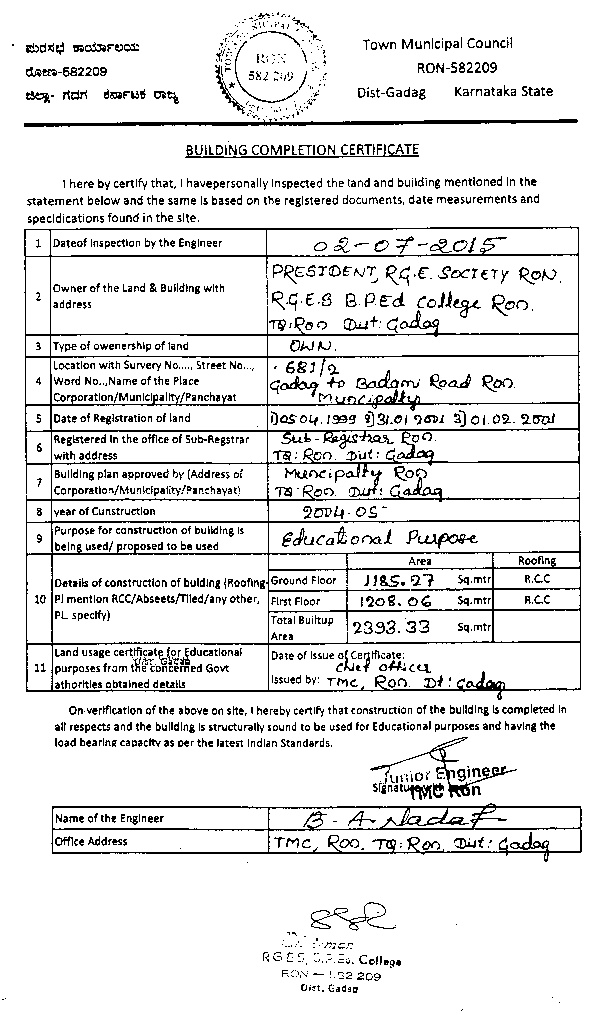 ಪುರಸಭೆ ಕಾರ್ಯಾಲಯ
ರೋಣ-582209
ಜಿಲ್ಲಾ- ಗದಗ ಕರ್ನಾಟಕ ರಾಜ್ಯ
RON
582 209
Town Municipal Council
RON-582209
Dist-Gadag Karnataka State
BUILDING COMPLETION CERTIFICATE
I here by certify that, I havepersonally inspected the land and building mentioned in the
statement below and the same is based on the registered documents, date measurements and
specidications found in the site.
1 Dateof inspection by the Engineer 02-07-2015
2 Owner of the Land & Building with address PRESIDENT, R.G.E. SOCIETY RON.
R.G.E.S B.P.Ed College Ron.
TQ:Ron Dist: Gadag
3 Type of owenership of land OWN.
4 Location with Survery No...., Street No..,
Word No..,Name of the Place
Corporation/Municipality/Panchayat
681/2
Gadag to Badami Road Ron.
Muncipalty
5 Date of Registration of land 1)05.04.1999 2)31.01 2001 3)01.02.2001
6 Registered in the office of Sub-Regstrar
with address
Sub-Registrar Ron.
TQ: Ron. Dist: Gadag
7 Building plan approved by (Address of
Corporation/Municipality/Panchayat)
Muncipalty Ron
TQ: Ron. Dist: Gadag
8 year of Cunstruction 2004-05
9 Purpose for construction of building is
being used/ proposed to be used
Educational Purpose
10 Details of construction of bulding (Roofing
Pl mention RCC/Abseets/Tiled/any other,
PL. specify)
Area Roofing
Ground Floor 1185.27 Sq.mtr R.C.C
First Floor 1208.06 Sq.mtr R.C.C
Total Builtup
Area
2393.33 Sq.mtr
11 Land usage certificate for Educational
purposes from the concerned Govt
athorities obtained details
Date of Issue of Certificate:
chief officer
Issued by: TMC, Ron. Dt: Gadag
On verification of the above on site, I hereby certify that construction of the building is completed in
all respects and the building is structurally sound to be used for Educational purposes and having the
load bearing capacity as per the latest Indian Standards.
Junior Engineer
Signature with
TMC Ron
Name of the Engineer B. A. Nadaf
Office Address TMC, Ron, TQ: Ron, Dist: Gadag
RGES, B.P.Ed. College
RON — 582 209
Dist. Gadag